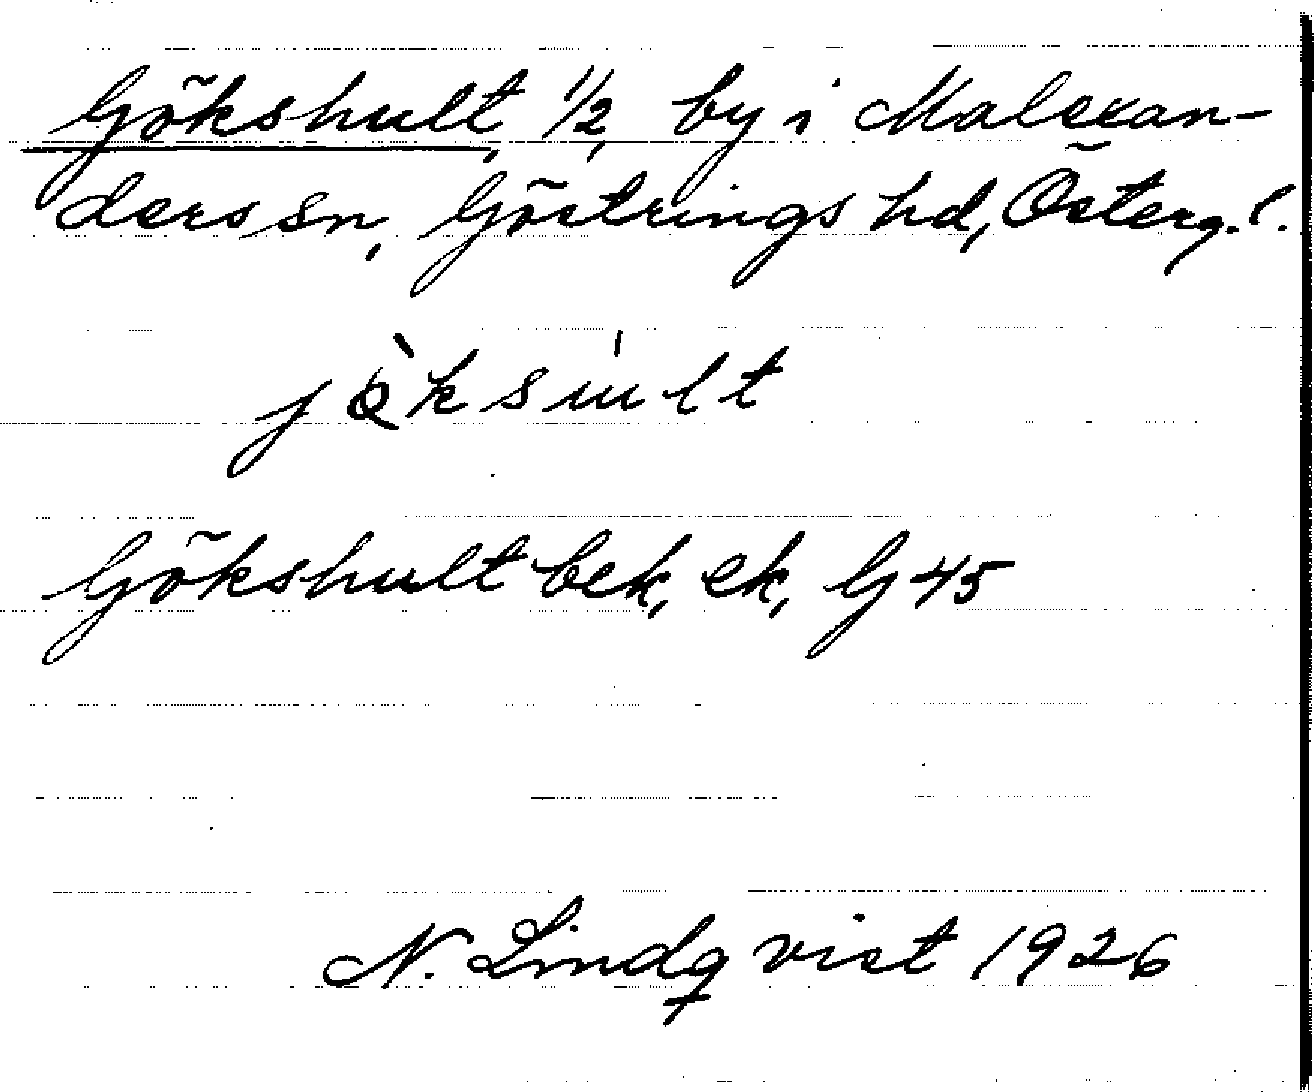 Gökshult, 1/2, by i Malexan-
ders sn, Göstrings hd, Österg. l.
Gökshult bek, ek, G 45
N. Lindqvist 1926